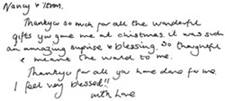 Nancy &
Thankyou so much for all the wonderful
gifts you gave me at christmas. It was such
an amazing suprise & blessing. So thoughtful
& means the world to me.
Thankyou for all you have done for me.
I feel very blessed!!
with love